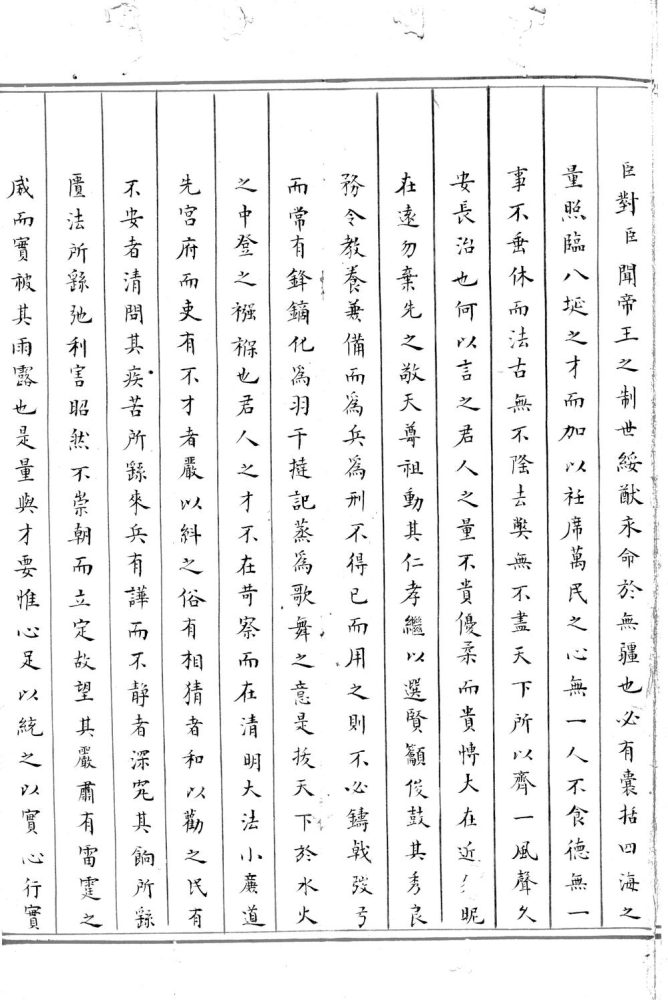 臣對臣聞帝王之制世綏猷永命於無疆也必有囊括四海之
量照臨八埏之才而加以衽席萬民之心無一人不食德無一
事不垂休而法古無不隆去弊無不盡天下所以齊一風聲久
安長治也何以言之君人之量不貴優柔而貴博大在近勿昵
在遠勿棄先之敬天尊祖動其仁孝繼以選賢籲俊鼓其秀良
務令教養兼備而為兵為刑不得已而用之則不必鑄戟弢弓
而常有鋒鏑化為羽干撻記蒸為歌舞之意是拔天下於水火
之中登之襁褓也君人之才不在苛察而在清明大法小廉道
先宮府而吏有不才者嚴以糾之俗有相猜者和以勸之民有
不安者清問其疾苦所繇來兵有譁而不静者深究其餉所繇
匱法所繇弛利害昭然不崇朝而立定故望其嚴肅有雷霆之
威而實被其雨露也是量與才要惟心足以統之以實心行實